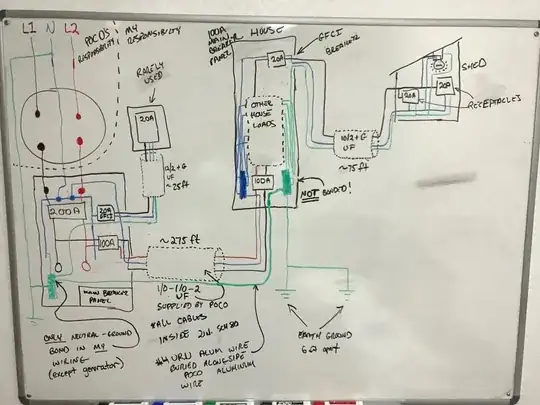 L1 N L2
POCO'S
RESPONSIBILITY
MY
RESPONSIBILITY
RARELY
USED
20A
12/2+G
UF
~25ft
200A
20A
GFCI
100A
MAIN BREAKER
PANEL
ONLY NEUTRAL-GROUND
BOND IN MY
WIRING
(except generator)
~275 ft
1/0-1/0-2
UF
SUPPLIED BY POCO
*ALL CABLES
INSIDE 2in. SCH 80
#4 URD ALUM WIRE
BURIED ALONGSIDE
POCO ALUMINUM
WIRE
100A
MAIN
BREAKER
PANEL
HOUSE
20A
GFCI
BREAKER
OTHER
HOUSE
LOADS
100A
NOT BONDED!
EARTH GROUND
6ft apart
10/2+G
UF
~75ft
SHED
20A
20A
RECEPTACLES